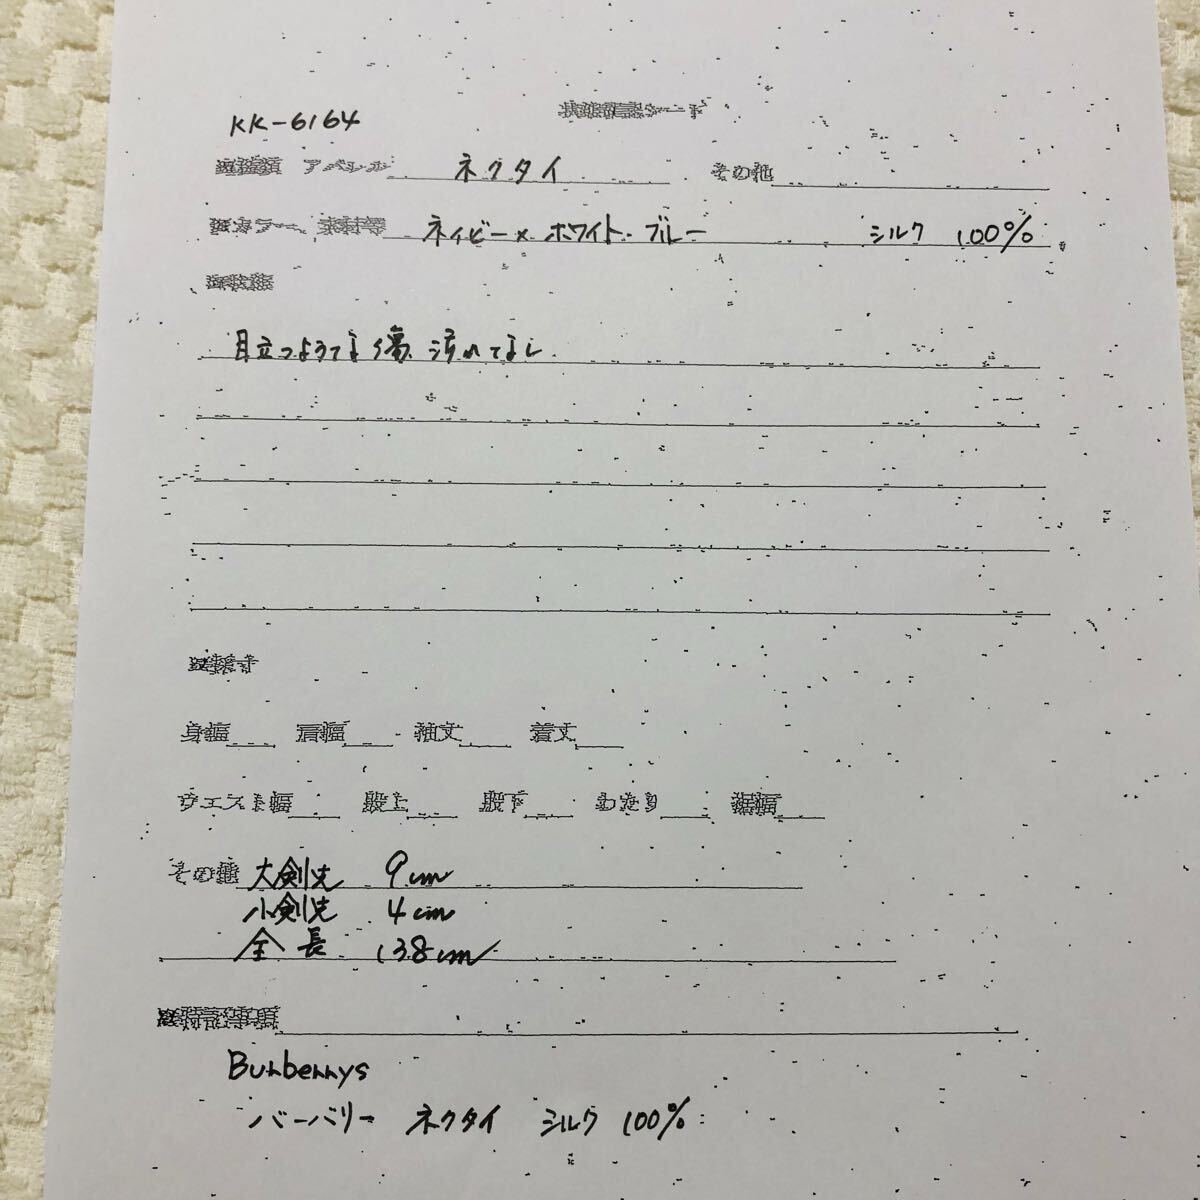 KK-6164
状態確認シート
アパレル ネクタイ その他
カラー 素材等 ネイビー×ホワイト・ブルー シルク 100%
目立つような傷、汚れなし
身幅 肩幅 袖丈 着丈
ウエスト幅 股上 股下 わたり 裾幅
その他 大剣先 9cm
小剣先 4cm
全長 138cm
特記事項
Burberrys
バーバリー ネクタイ シルク 100%